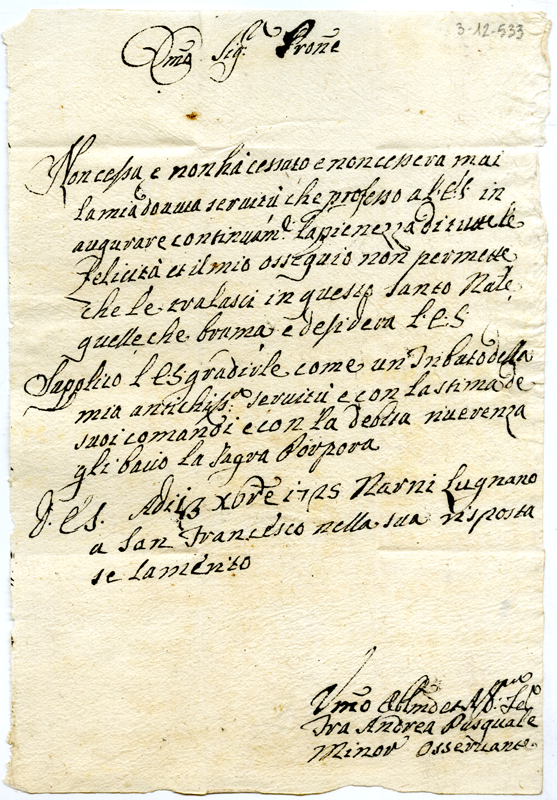 3-12-533
Emo Sig.r Prone
Non cessa, e non hà cessato e non cesserà mai
la mia dovuta servitù che professo a l'ES in
augurare continuam.te la pienezza di tutte le
felicità et il mio osseguio non permette
che le tralasci in questo santo Nale
quelle che brama, e desidera l'ES
Supplico l'ES gradirle come un Inbuto della
mia antichiss.a servitù e con la stima de
suoi comandi e con la debita riverenza
gli bacio la Sagra Porpora
D. ES. Adi 13 Xbre 1725 Narni Lugnano
a San Francesco nella sua risposta
se la merito
Vmo
Fra Andrea Pasquale
Minor Osservante